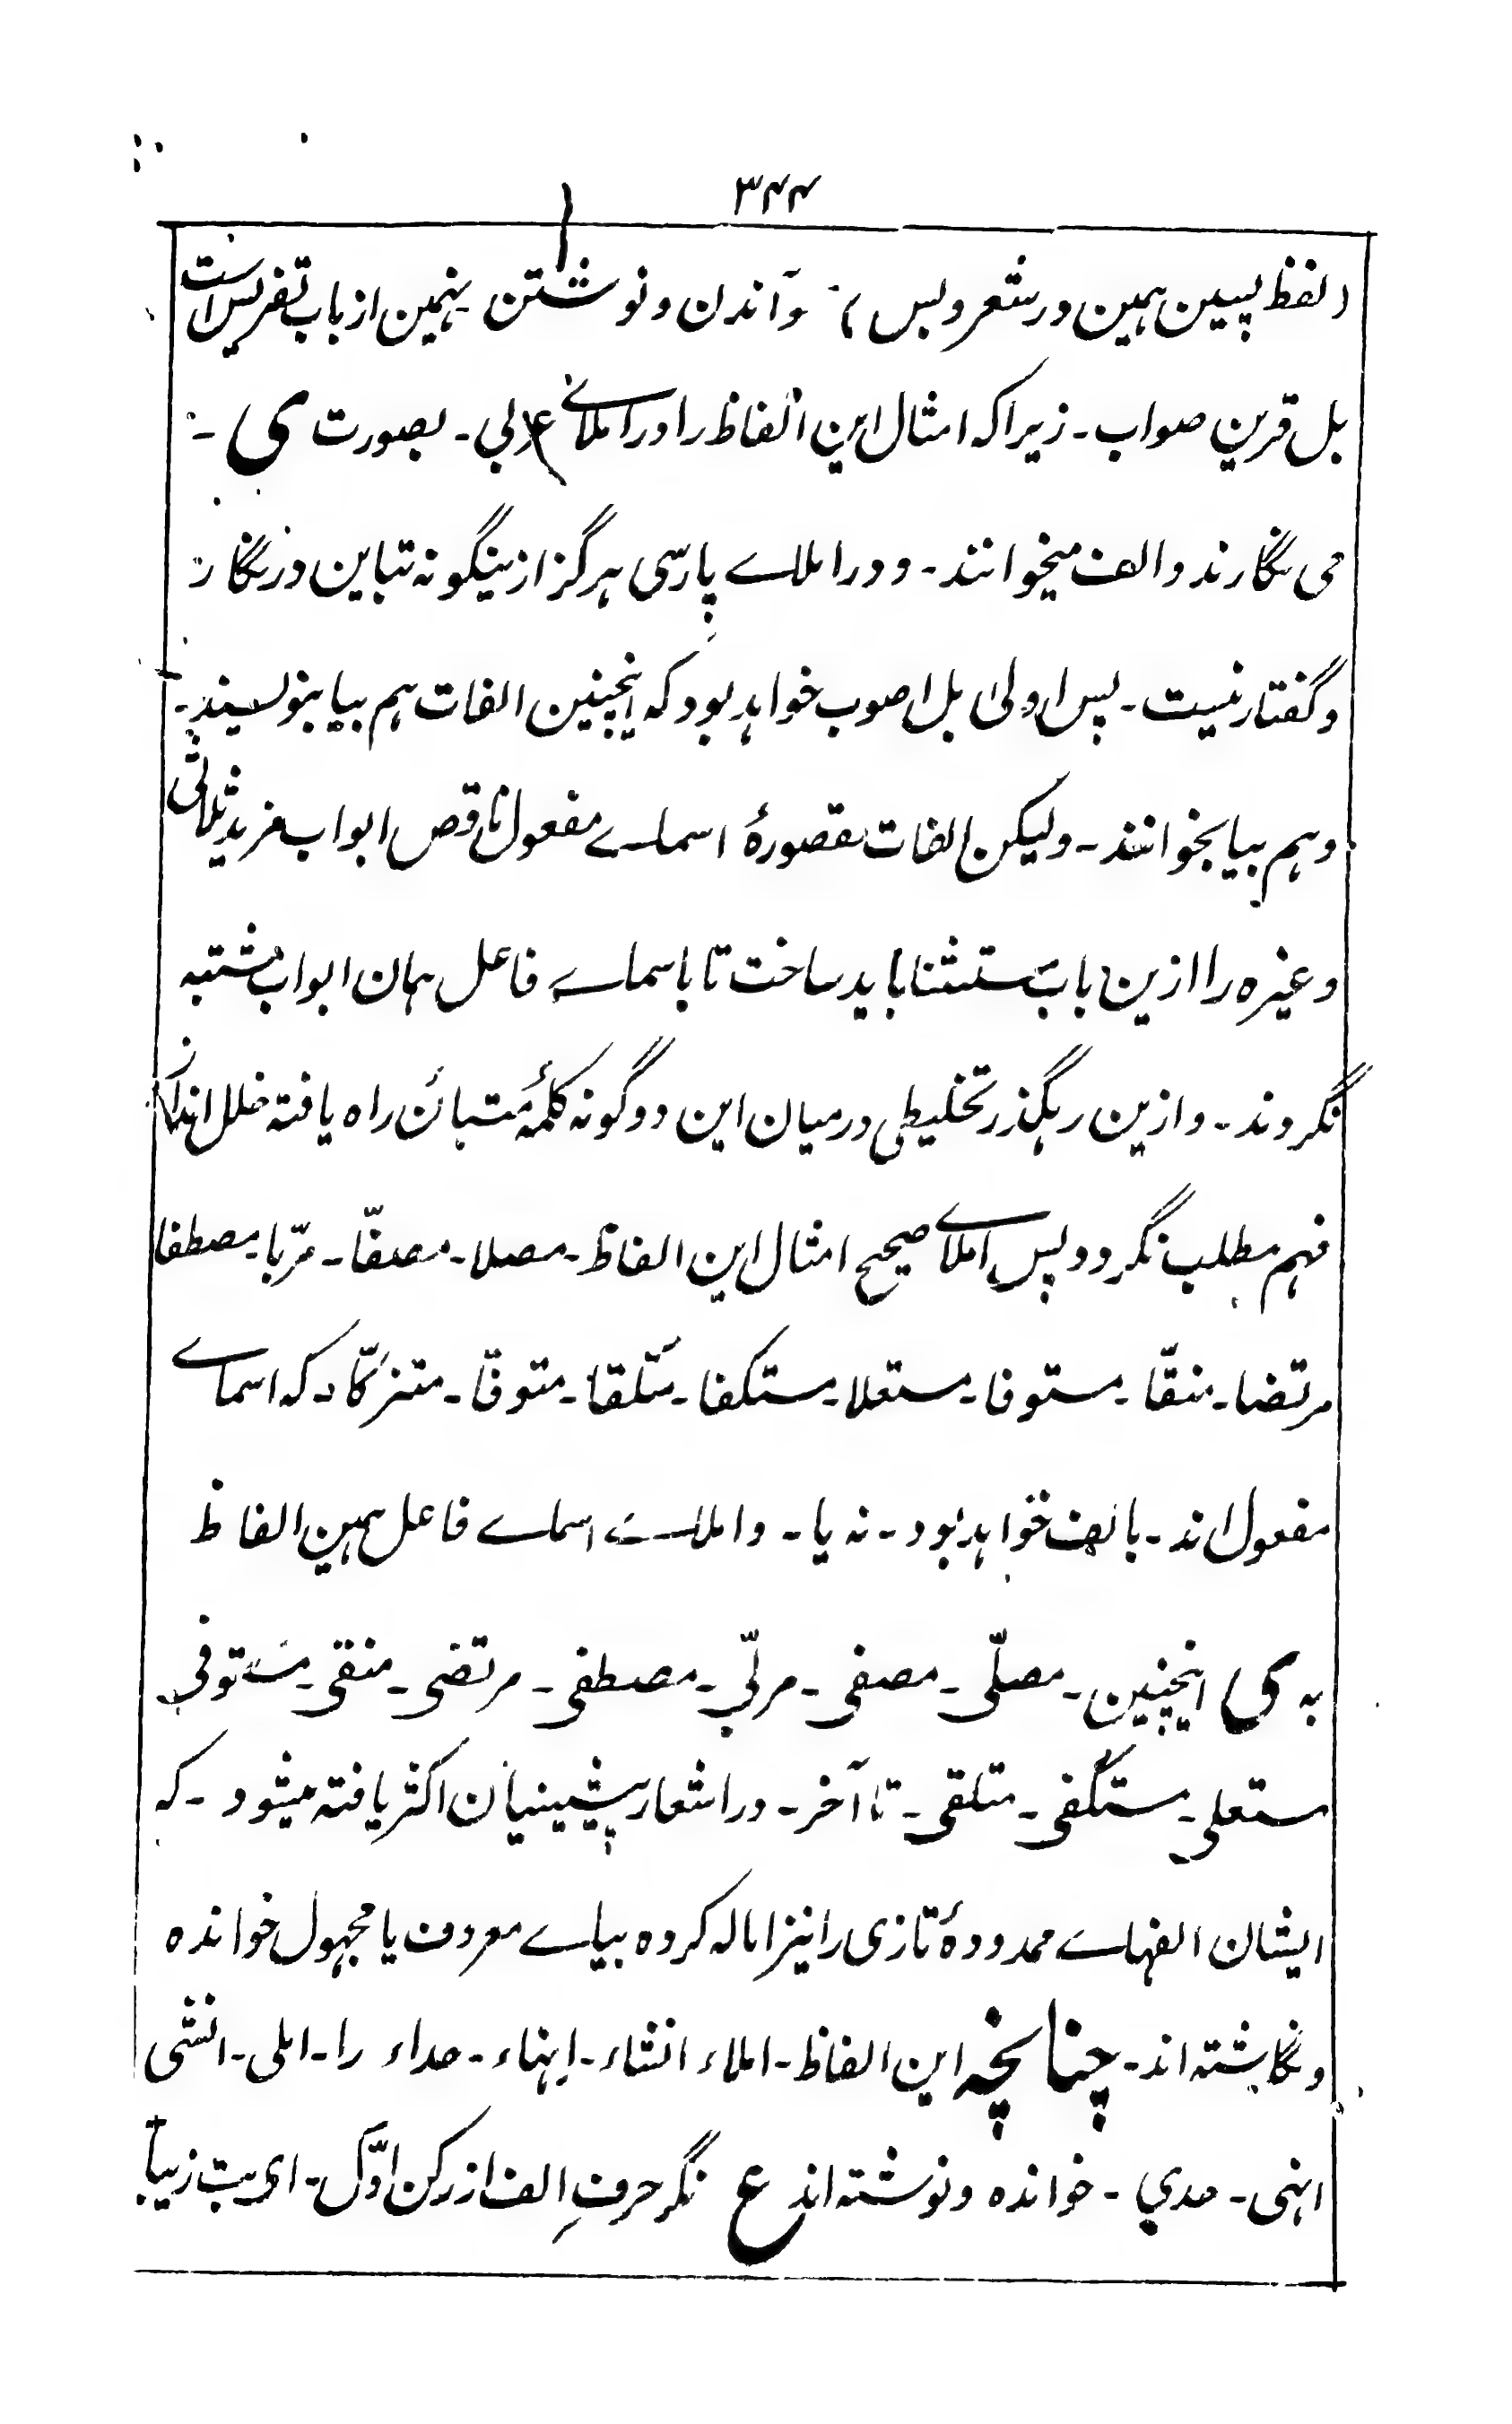 ۳۴۴
(لفظ پسین همین در شعر و بس) وآندن و نوشتن همین از باب تفریس است
بل قرین صواب - زیرا که امثال این الفاظ را در املاے عربی - بصورت ی -
می نگارند و الف میخوانند - و در املاے پارسی هرگز ازینگونه تباین در نگار
و گفتار نیست - پس اولیٰ بل اصوب خواهد بود که اینچنین الفات هم بیا بنویسند -
و هم بیا بخوانند - ولیکن الفات مقصورهٔ اسماے مفعول ناقص ابواب مزید ثلاثی
و غیره را ازین باب مستثنا باید ساخت تا باسماے فاعل همان ابواب مشتبه
نگروند - و ازین رهگذر تخلیطی درمیان این دو گونه کلمهٔ متبائن راه یافته خلل انداز
فهم مطلب نگردد پس املاے صحیح امثال این الفاظ - مصلا - مصفّا - مربّا - مصطفا
مرتضا - منقّا - مستوفا - مستعلا - مستکفا - متلقا - متوقا - متزکّا - که اسماے
مفعول اند - بالف خواهد بود - نه یا - و املاے اسماے فاعل همین الفاظ
به ی اینچنین - مصلّی - مصفی - مربّی - مصطفی - مرتضی - منقی - مستوفی
مستعلی - مستکفی - متلقی - تا آخر - در اشعار پیشینیان اکثر یافته میشود - که
ایشان الفهاے ممدودهٔ تازی را نیز اماله کرده بیاے معروف یا مجهول خوانده
و نگاشته اند - چنانچه این الفاظ - املاء انشاء - انهاء - حداء را - املی - انشی
انهی - حدی - خوانده و نوشته اند ع نگر حرفِ الف از رکن اوّل - ای بت زیبا